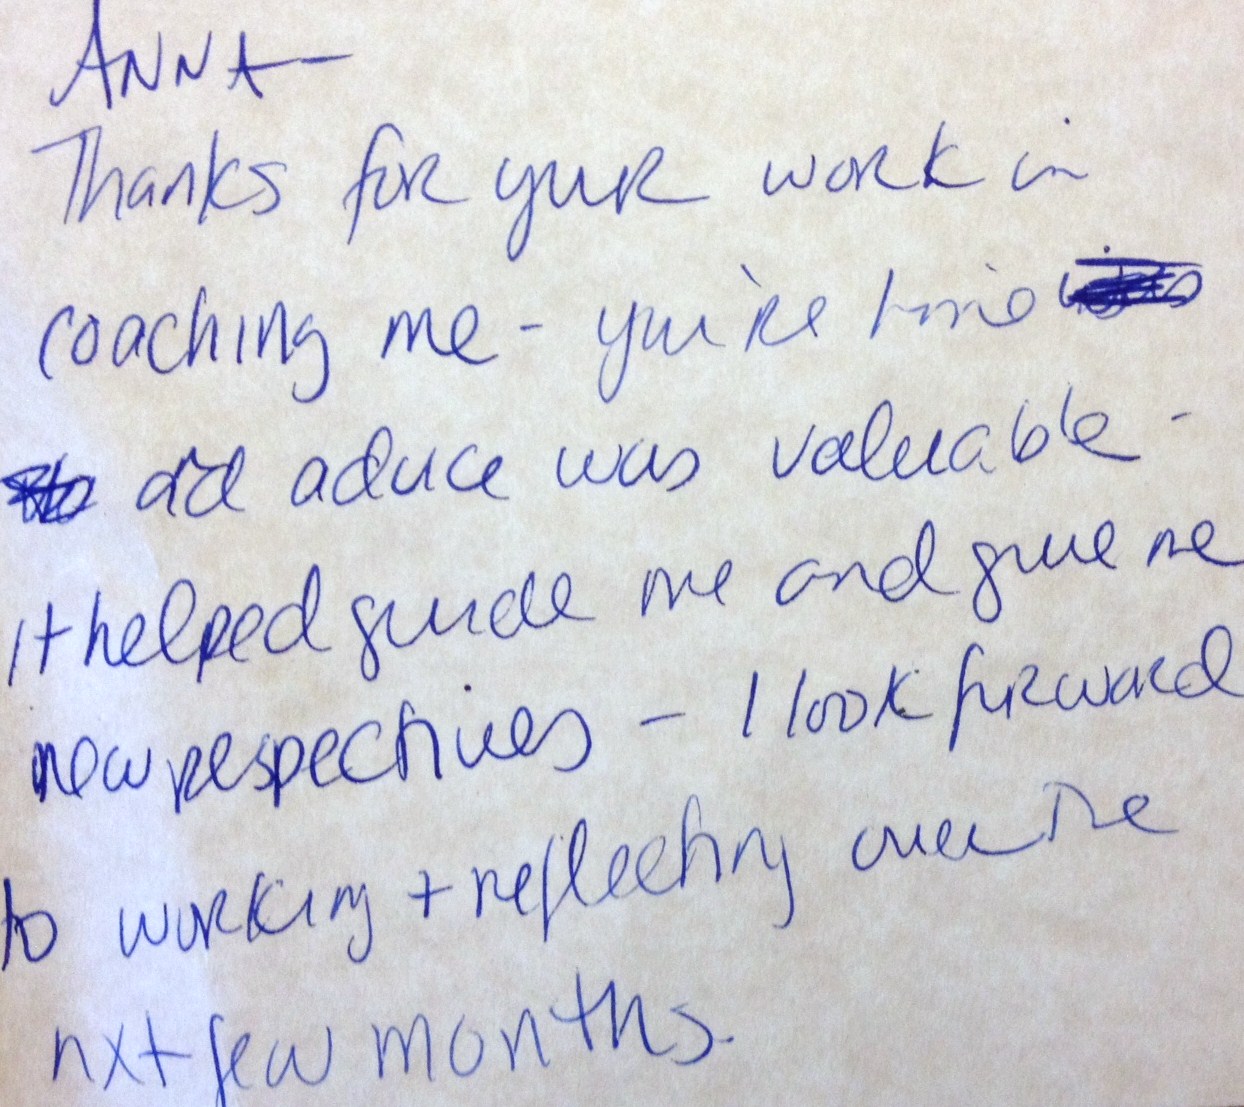 ANNA—
Thanks for your work in
coaching me - you're time
and advice was valuable -
It helped guide me and give me
new perspectives - I look forward
to working + reflecting over the
nxt few months.